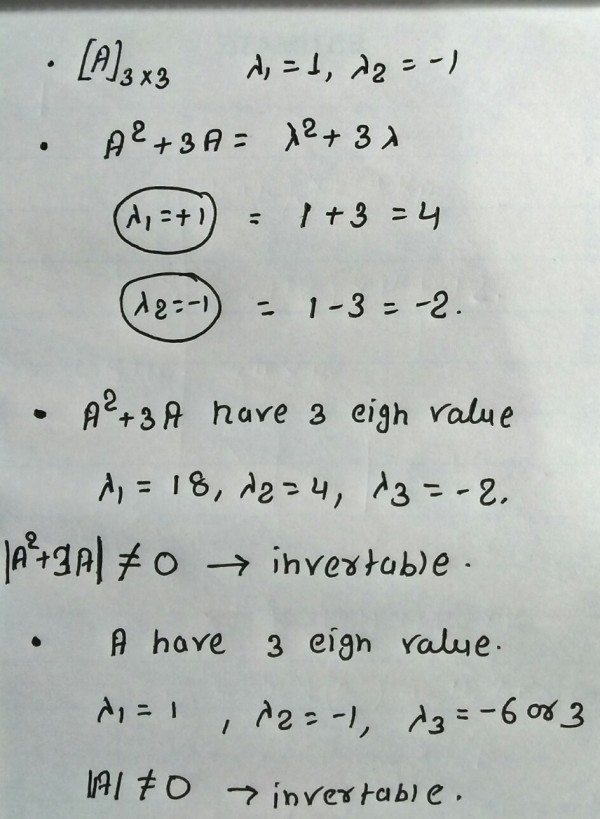 • [A]₃ₓ₃ λ₁ = 1, λ₂ = -1
• A² + 3A = λ² + 3λ
λ₁ = +1 = 1 + 3 = 4
λ₂ = -1 = 1 - 3 = -2.
• A² + 3A have 3 eigh value
λ₁ = 18, λ₂ = 4, λ₃ = -2.
|A² + 3A| ≠ 0 → invertable.
• A have 3 eigh value.
λ₁ = 1, λ₂ = -1, λ₃ = -6 or 3
|A| ≠ 0 → invertable.